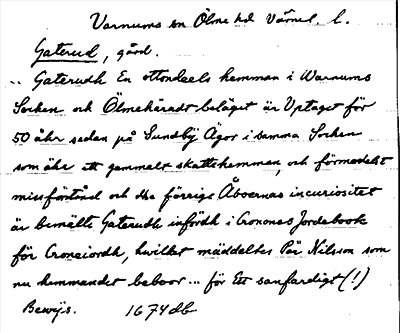 Varnums sn Ölme hd Värml. l.
Gaterud, gård.
.. Gaterudh En ottondeels hemman i Warnums
Socken och Ölmehäradt beläget är Uptaget för
50 åhr sedan på Sundby Ägor i samma Socken
som ähr ett gammalt skattehemman, och förmedelst
missförstånd och the förrige Åboernas incuriositet
är bemälte Gaterudh infördh i Cronones Jordebook
för Croneiordh, hwilket mäddeltes Pär Nilsson som
nu hemmandet beboor ... för Ett sanfärdigt (!)
Bewijs. 1674 db